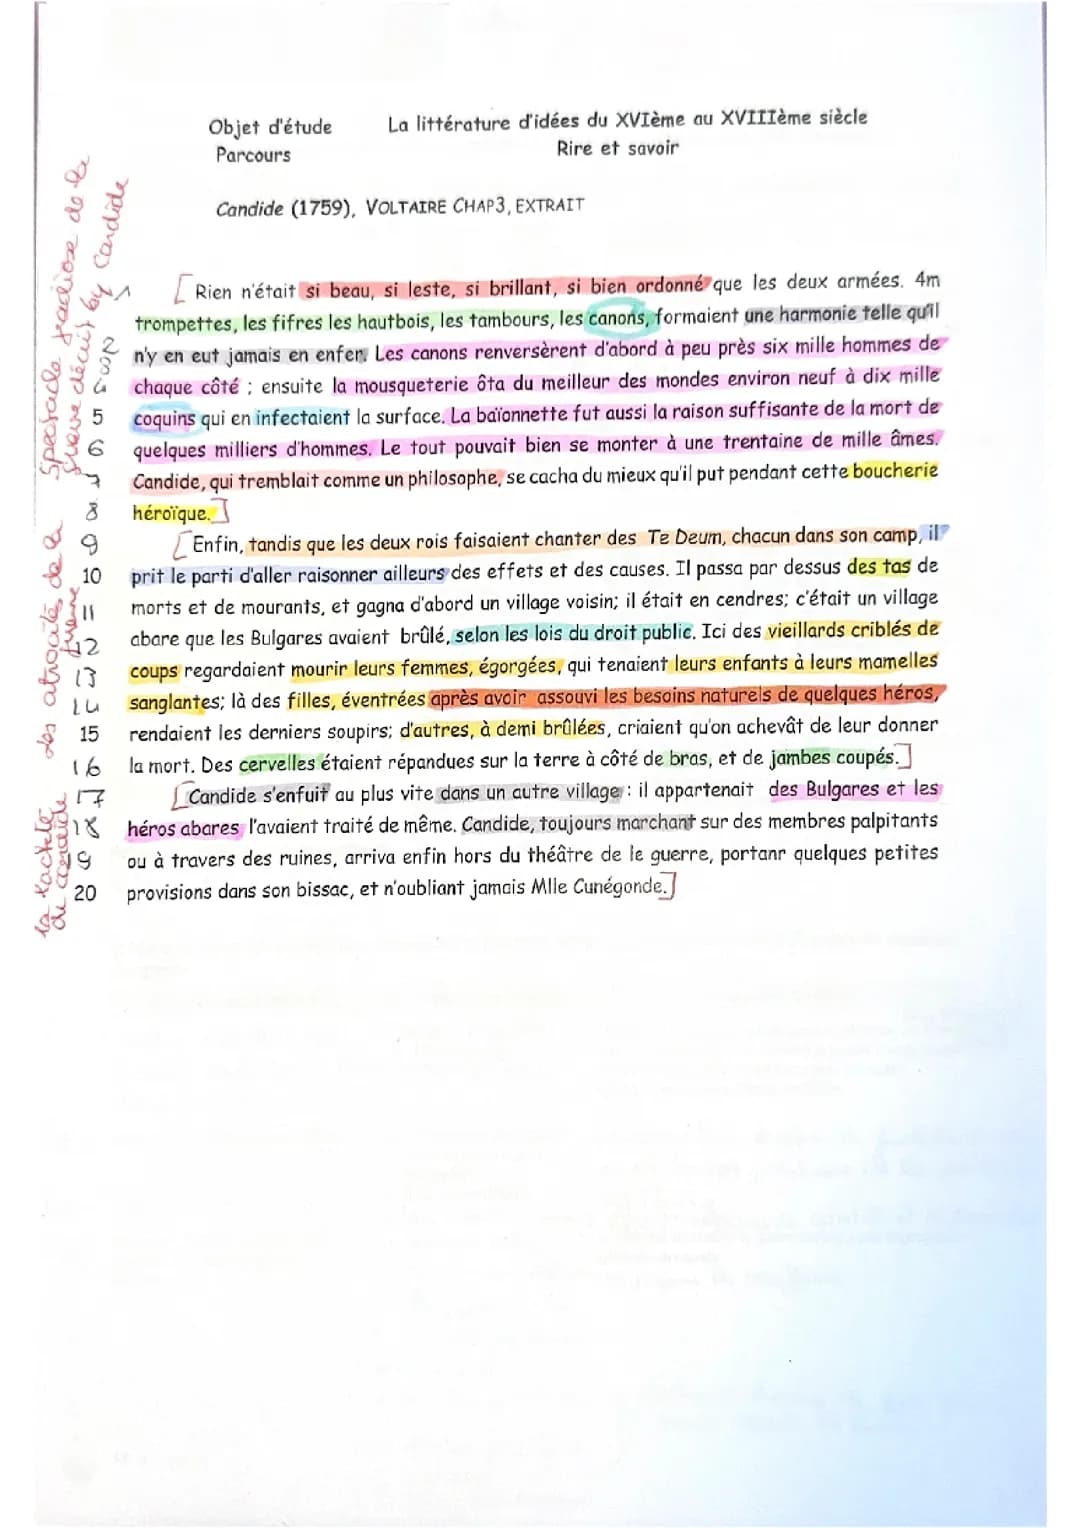 Objet d'étude La littérature d'idées du XVIème au XVIIIème siècle
Parcours Rire et savoir
Candide (1759), VOLTAIRE CHAP3, EXTRAIT
Spectacle de la
guerre décrit by Candide
1 [ Rien n'était si beau, si leste, si brillant, si bien ordonné que les deux armées. 4m
trompettes, les fifres les hautbois, les tambours, les canons, formaient une harmonie telle qu'il
2 n'y en eut jamais en enfer. Les canons renversèrent d'abord à peu près six mille hommes de
3
4 chaque côté ; ensuite la mousqueterie ôta du meilleur des mondes environ neuf à dix mille
5 coquins qui en infectaient la surface. La baïonnette fut aussi la raison suffisante de la mort de
6 quelques milliers d'hommes. Le tout pouvait bien se monter à une trentaine de mille âmes.
7 Candide, qui tremblait comme un philosophe, se cacha du mieux qu'il put pendant cette boucherie
8 héroïque. ]
des atrocités de la
guerre
9 [ Enfin, tandis que les deux rois faisaient chanter des Te Deum, chacun dans son camp, il
10 prit le parti d'aller raisonner ailleurs des effets et des causes. Il passa par dessus des tas de
11 morts et de mourants, et gagna d'abord un village voisin; il était en cendres; c'était un village
12 abare que les Bulgares avaient brûlé, selon les lois du droit public. Ici des vieillards criblés de
13 coups regardaient mourir leurs femmes, égorgées, qui tenaient leurs enfants à leurs mamelles
14 sanglantes; là des filles, éventrées après avoir assouvi les besoins naturels de quelques héros,
15 rendaient les derniers soupirs; d'autres, à demi brûlées, criaient qu'on achevât de leur donner
16 la mort. Des cervelles étaient répandues sur la terre à côté de bras, et de jambes coupés. ]
la lacheté
de candide
17 [ Candide s'enfuit au plus vite dans un autre village : il appartenait des Bulgares et les
18 héros abares l'avaient traité de même. Candide, toujours marchant sur des membres palpitants
19 ou à travers des ruines, arriva enfin hors du théâtre de le guerre, portanr quelques petites
20 provisions dans son bissac, et n'oubliant jamais Mlle Cunégonde. ]